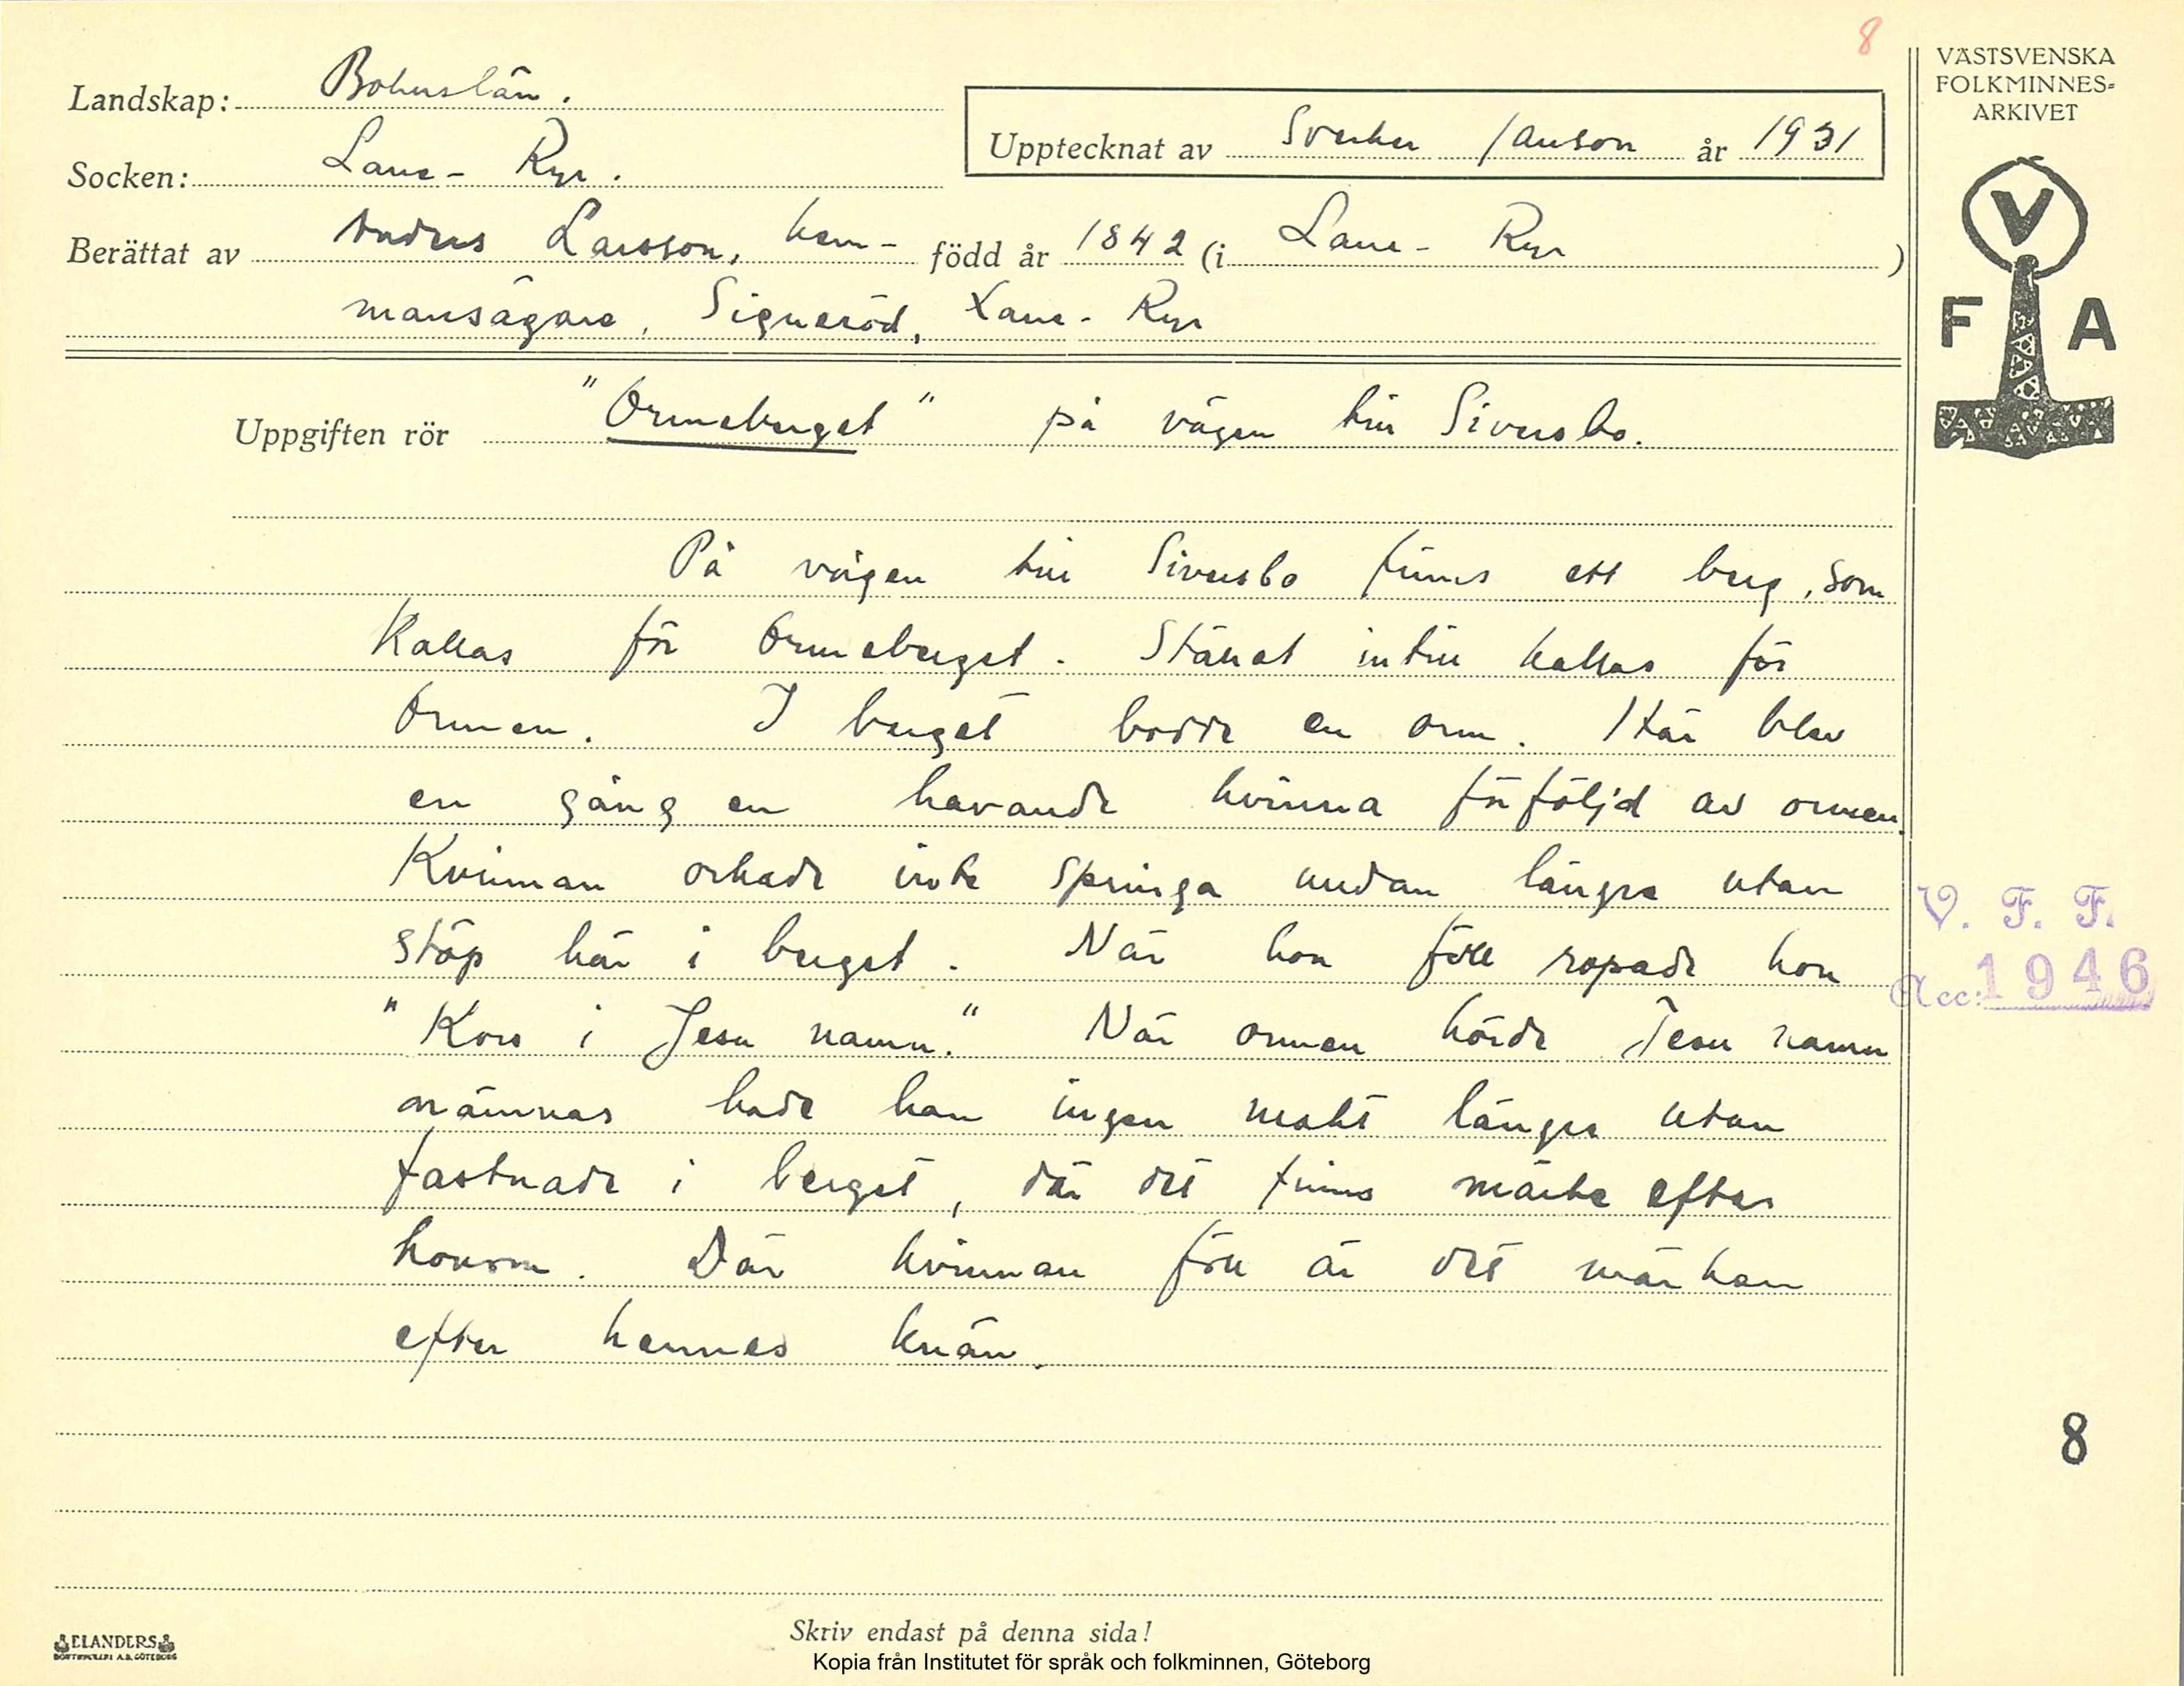 8
VÄSTSVENSKA
FOLKMINNES-
ARKIVET
Landskap: Bohuslän.
Upptecknat av Sverker Janson år 1931
Socken: Lane-Ryr.
Berättat av Anders Larsson, hem- född år 1842 (i Lane-Ryr)
mansägare, Signeröd, Lane-Ryr
V
F A
Uppgiften rör "Ormeberget" på vägen till Siversbo.
På vägen till Siversbo finns ett berg, som
kallas för Ormeberget. Stället intill kallas för
Ormen. I berget bodde en orm. Här blev
en gång en havande kvinna förföljd av ormen.
Kvinnan orkade inte springa undan längre utan
stöp här i berget. När hon föll ropade hon
"Kors i Jesu namn." När ormen hörde Jesu namn
nämnas hade han ingen makt längre utan
fastnade i berget, där det finns märke efter
honom. Där kvinnan föll är det märken
efter hennes knän.
V. F. F.
Acc: 1946
8
ELANDERS
BOKTRYCKERI A.B. GÖTEBORG
Skriv endast på denna sida!
Kopia från Institutet för språk och folkminnen, Göteborg